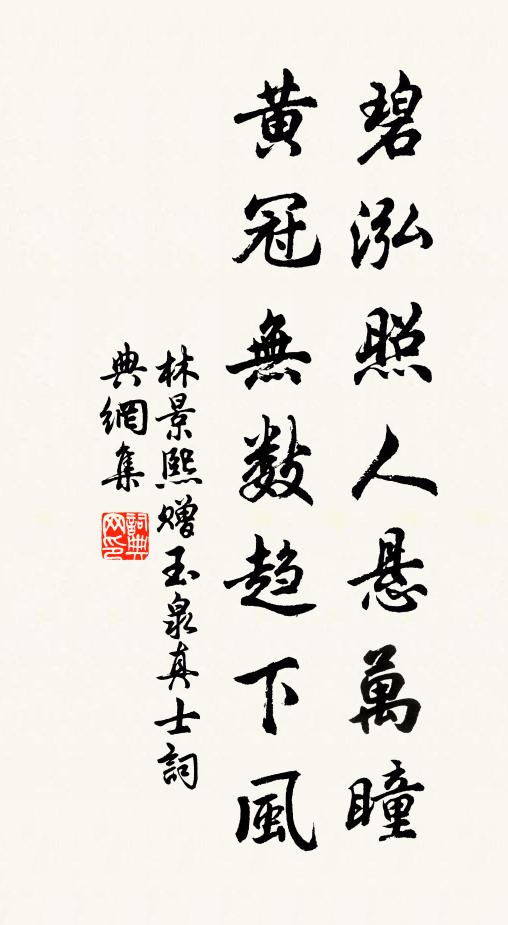 碧泓照人悬萬瞳
黃冠無数趋下風
林景熙赠玉泉真士詞
典網集
詞典
网印